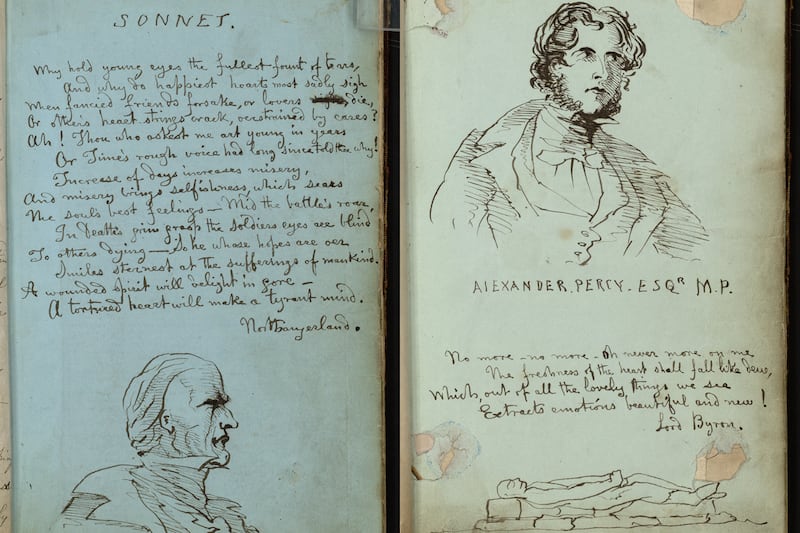 SONNET.
Why hold young eyes the fullest fount of tears,
And why do happiest hearts most sadly sigh
When fancied friends forsake, or lovers die,
Or other's heart strings crack, overstrained by cares?
Ah! Thou who askest me art young in years
Or Time's rough voice had long since told thee why!
Increase of days increases misery,
And misery brings selfishness, which sears
The souls best feelings — Mid the battle's roar,
In Death's grim grasp the soldiers eyes are blind
To others dying — So he whose hopes are oer
Smiles sternest at the sufferings of mankind.
A wounded spirit will delight in gore —
A tortured heart will make a tyrant mind.
Northangerland.
ALEXANDER. PERCY. ESQR M.P.
No more — no more — oh never more on me
The freshness of the heart shall fall like dew,
Which, out of all the lovely things we see
Extracts emotions beautiful and new!
Lord Byron.